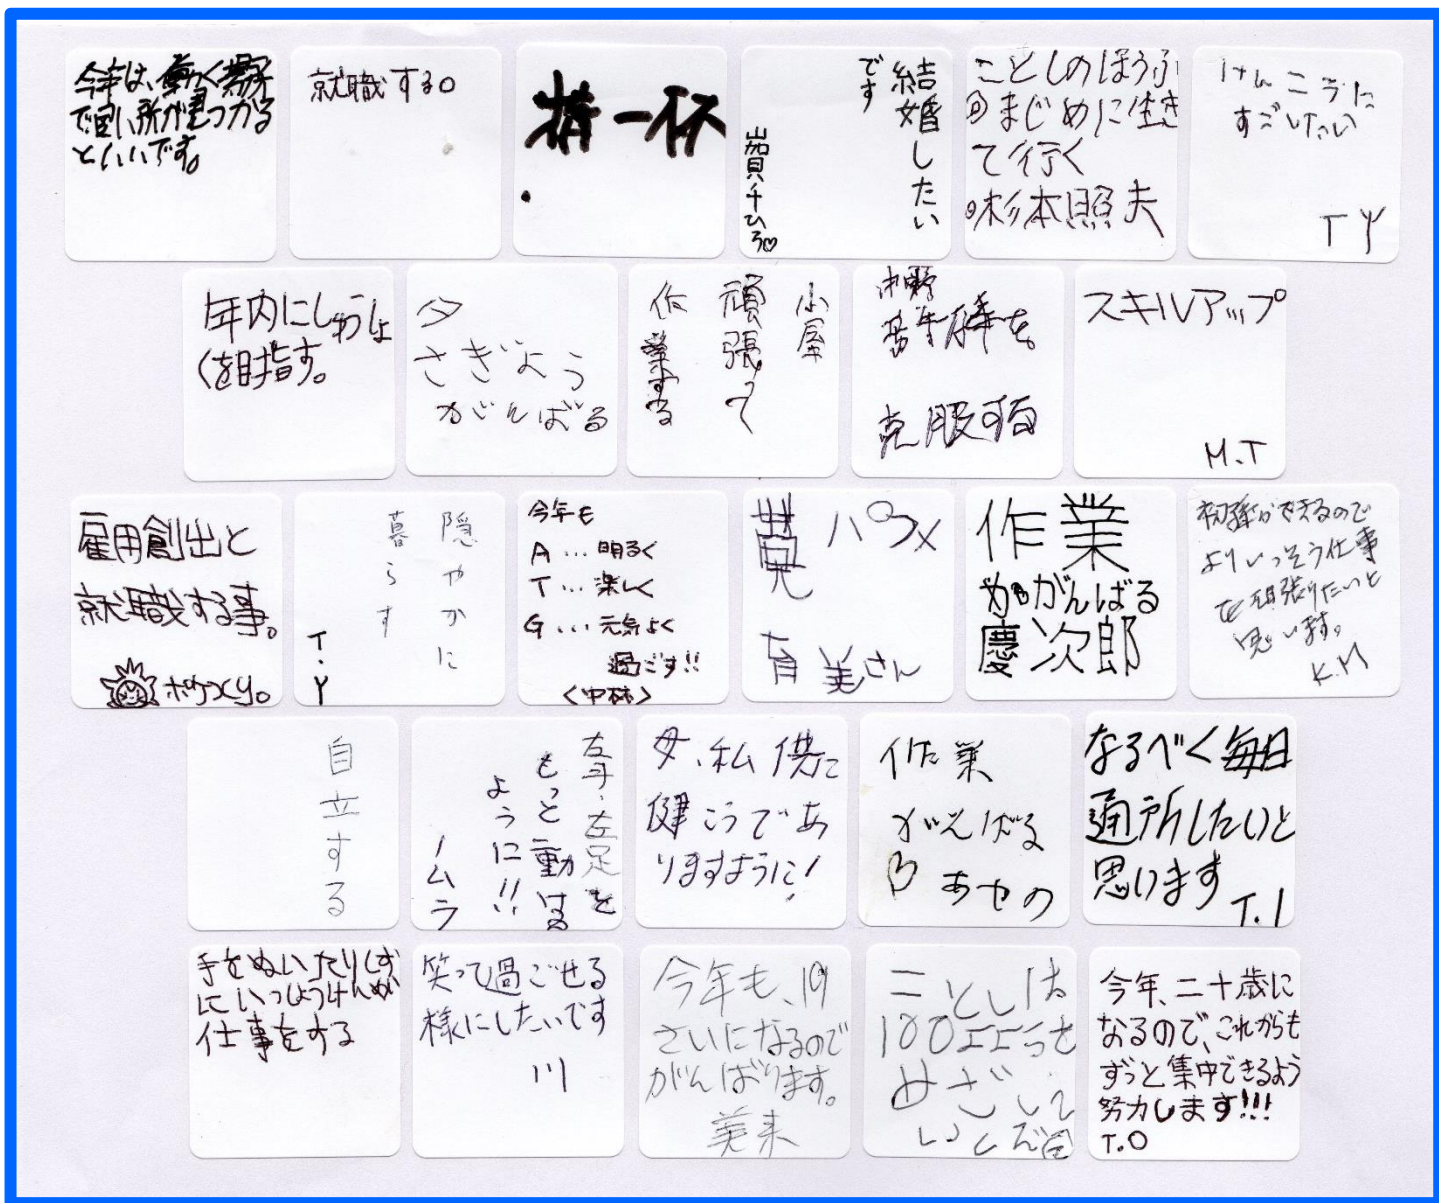 今年は、働く場所
で良い所が見つかる
といいです。
就職する。
精一杯
結婚したい
です
千ひろ♡
ことしのほうふ
まじめに生き
て行く
杉本照夫
けんこうに
すごしたい
TY
年内にしゅうしょ
くを目指す。
夕
さぎょう
がんばる
小屋
頑張って
作業する
を、
克服する
スキルアップ
M.T
雇用創出と
就職する事。
隠やかに
暮らす
T.Y
今年も
A…明るく
T…楽しく
G…元気よく
過ごす!!
<中林>
パフメ
育美さん
作業
がんばる
慶次郎
初孫ができるので
よりいっそう仕事
を頑張りたいと
思います。
K.M
自立する
左手・左足を
もっと動ける
ように!!
ノムラ
母、私供に
健こうであ
りますように!
作業
がんばる
あやの
なるべく毎日
通所したいと
思います
T.I
手をぬいたりしず
にいっしょうけんめい
仕事をする
笑って過ごせる
様にしたいです
川
今年も、19
さいになるので
がんばります。
美来
ことしは
100エエっを
めざして
いくぞ
今年、二十歳に
なるので、これからも
ずっと集中できるよう
努力します!!!
T.O